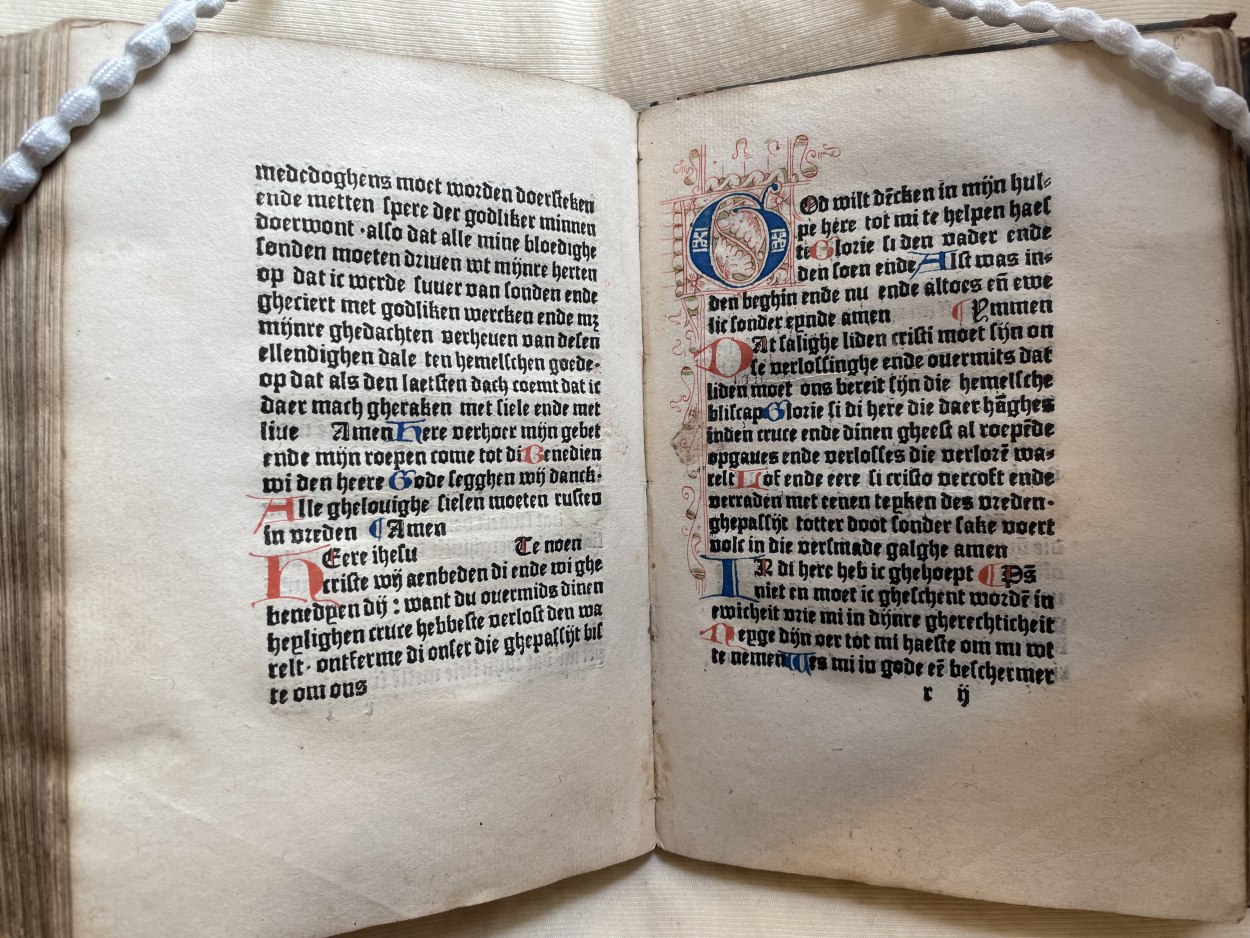 medēdoghens moet worden doersteken
ende metten spere der godliker minnen
doerwont · also dat alle mine bloedighe
sonden moeten driuen wt mijnre herten
op dat ic werde suuer van sonden ende
gheciert met godliken wercken ende mꝫ
mijnre ghedachten verheuen van desen
ellendighen dale ten hemelschen goede·
op dat als den laetsten dach coemt dat ic
daer mach gheraken met siele ende met
liue Amen Here verhoer mijn gebet
ende mijn roepen come tot di Benedien
wi den heere Gode segghen wij danck·
Alle ghelouighe sielen moeten rusten
in vreden ¶ Amen
HEere ihesu Te noen
criste wij aenbeden di ende wi ghe
benedyen dij : want du ouermids dinen
heylighen cruce hebbeste verlost den wa
relt· ontferme di onser die ghepassijt bis
te om ons
GOd wilt dēcken in mijn hul⸗
pe here tot mi te helpen haes
te Glorie si den vader ende
den soen ende Alst was in⸗
den beghin ende nu ende altoes eñ ewe
lic sonder eynde amen ¶ Ymmen
DAt salighe liden cristi moet sijn on
se verlossinghe ende ouermits dat
liden moet ons bereit sijn die hemelsche
bliscap Glorie si di here die daer hāghes
inden cruce ende dinen gheest al roepēde
opgaues ende verlosses die verlorē wa⸗
relt Lof ende eere si cristo vercoft ende
verraden met eenen teyken des vreden·
ghepassijt totter doot sonder sake voert
volc in die versmade galghe amen
IN di here heb ic ghehoept ¶ Ps̄
niet en moet ic gheschent wordē in
ewicheit vrie mi in dijnre gherechticheit
Neyge dijn oer tot mi haeste om mi wt
te nemen Wes mi in gode eē beschermer
r ij